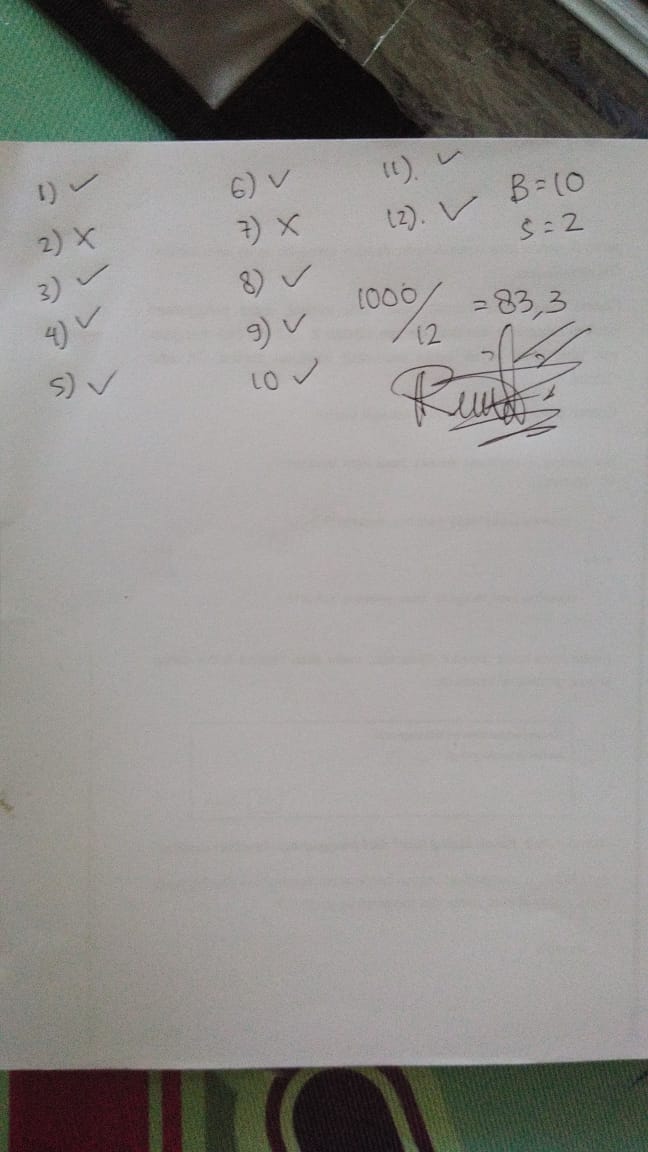 1) ✓
2) X
3) ✓
4) ✓
5) ✓
6) ✓
7) X
8) ✓
9) ✓
10 ✓
11). ✓
12). ✓
B = 10
S = 2
1000/12 = 83,3